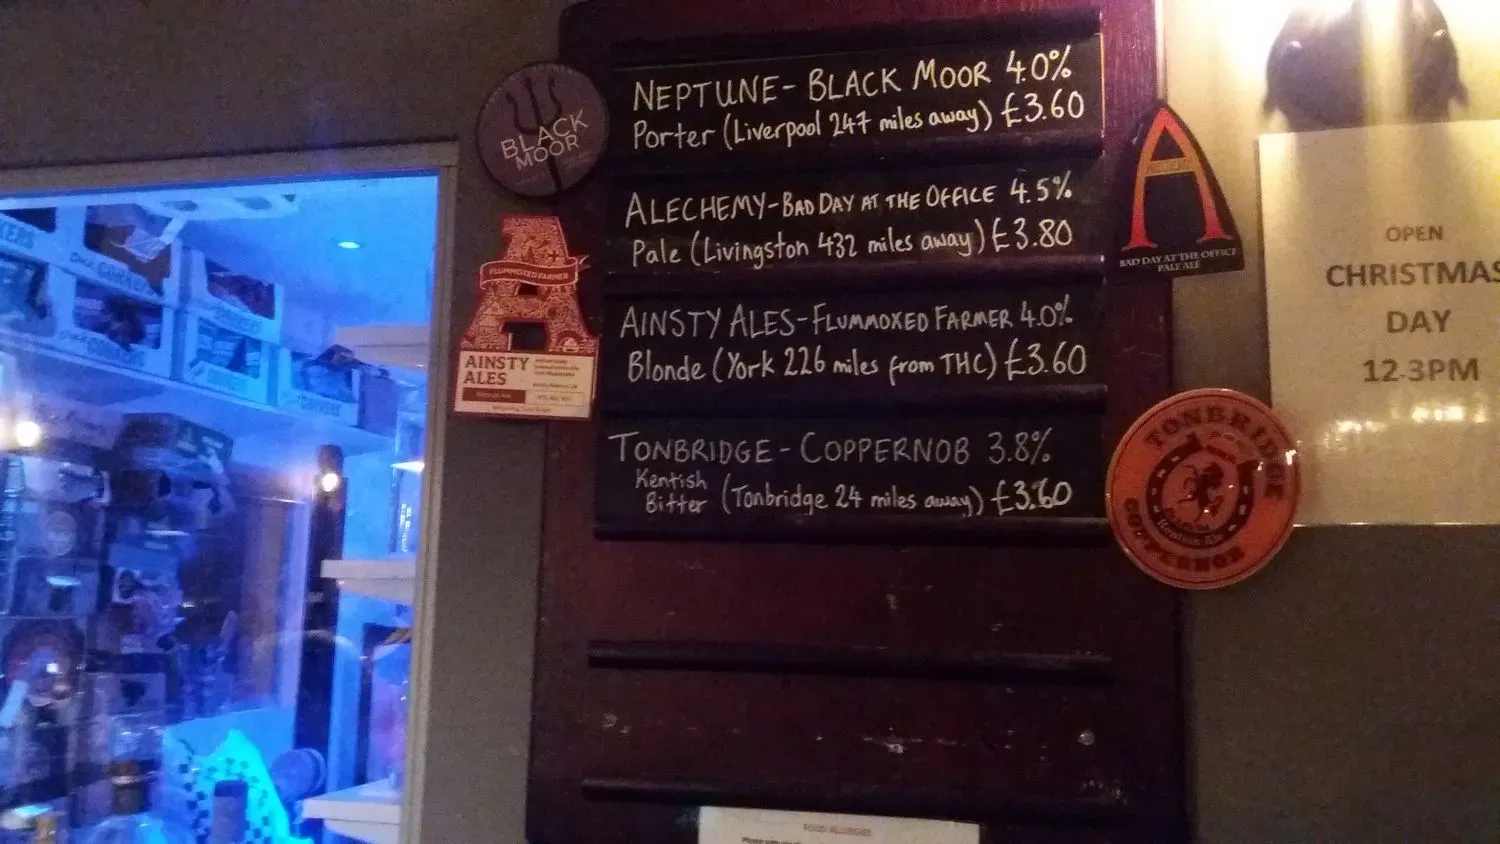 NEPTUNE- BLACK MOOR 4.0%
Porter (Liverpool 247 miles away) £3.60
ALECHEMY-BAD DAY AT THE OFFICE 4.5%
Pale (Livingston 432 miles away) £3.80
AINSTY ALES-FLUMMOXED FARMER 4.0%
Blonde (York 226 miles from THC) £3.60
TONBRIDGE - COPPERNOB 3.8%
Kentish
Bitter (Tonbridge 24 miles away) £3.60
BLACK
MOOR
FLUMMOXED FARMER
AINSTY
ALES
BAD DAY AT THE OFFICE
PALE ALE
TONBRIDGE
COPPERNOB
Kentish Ale
OPEN
CHRISTMAS
DAY
12-3PM
FOOD ALLERGIES